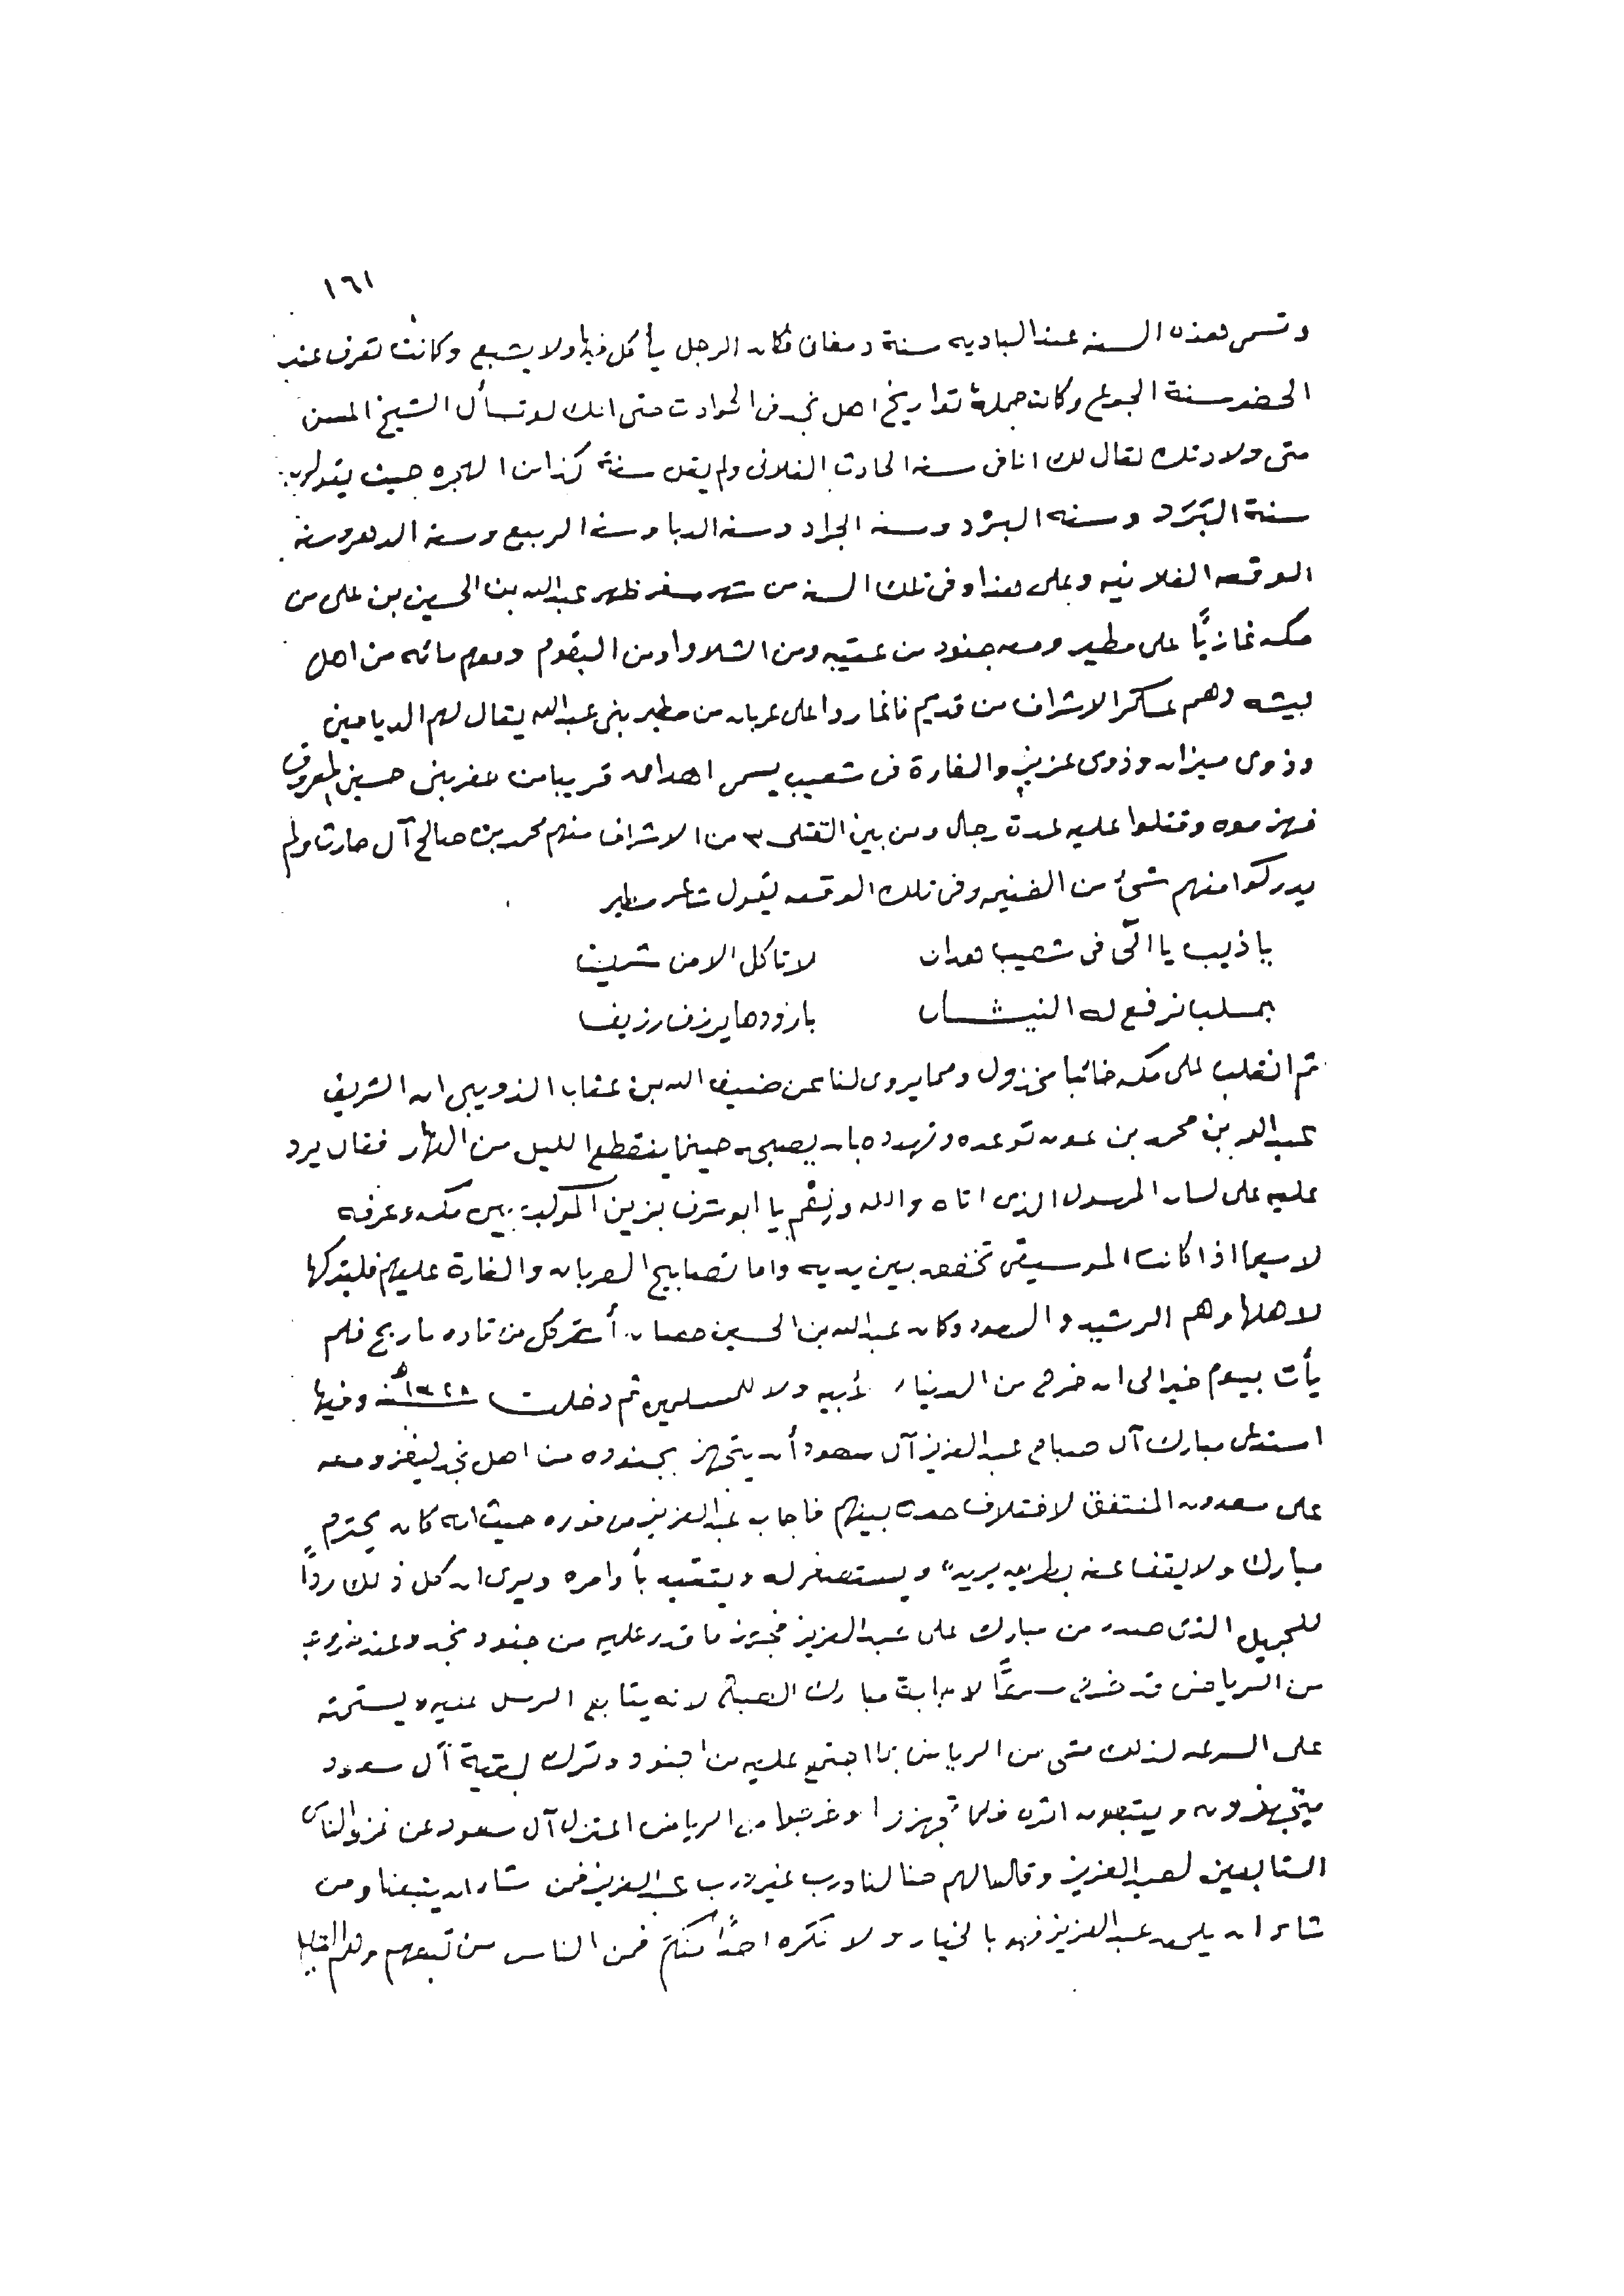 ١٦١
وتسمى هذه السنه عند البادية سنة دمغان فكان الرجل يأكل فيها ولا يشبع وكانت تعرف عند
الحضر سنة الجوع وكانت جملة تواريخ اهل نجد في الحوادث حتى انك لو تسأل الشيخ المسن
متى ولادتك لقال لك انا في سنة الحادث الفلاني ولم يقل سنة كذا من الهجره حيث يقولون
سنة البَرَد وسنه البرْد وسنه الجراد وسنه الدبا وسنة الربيع وسنه الدهر وسنه
الوقعه الفلانيه وعلى هذا وفي تلك السنه من شهر صفر ظهر عبدالله بن الحسين بن علي من
مكه غازيًا على مطير ومعه جنود من عتيبه ومن الشلاوا ومن البقوم ومعهم مائه من اهل
بيشه وهم عسكر الاشراف من قديم فاغاروا على عربان من مطير بني عبدالله يقال لهم الدياحين
وذوي ميزان وذوي عزيز والغارة في شعيب يسمى اهدان قريبا من حفر بني حسين المعروف
فهزموه وقتلوا عليه عدة رجال ومن بين القتلى ٣ من الاشراف منهم محمد بن صالح آل حارث ولم
يدركوا منهم شيئ من الغنيمه وفي تلك الوقعه يقول شاعر مطير
يا ذيب يا اللّي في شعيب هدان لا تاكل الا من شريف
بمسلبا نرفع له النيشان بارودها يرزف رزيف
ثم انقلب على مكه خائبا مخذول ومما يروى لنا عن ضيف الله بن عقاب الذويبي ان الشريف
عبدالله بن محمد بن عون توعده وتهدده بان يصبحه حينما ينقطع الليل من النهار فقال يرد
عليه على لسان المرسول الذي اتاه والله ونِعْم يا ابو شرف بزين الموكب بين مكه وعرفه
لاسيما اذا كانت الموسيقى تخفق بين يديه واما تصابيح العربان والغارة عليهم فليتركها
لاهلها وهم الرشيد والسعود وكان عبدالله بن الحسين حصان أشقر كل من قاده ما ربح فلم
يأت بيوم خير الى ان خرج من الدنيا لأبيه ولا للمسلمين ثم دخلت سنة ١٣٢٨هـ وفيها
استدعى مبارك آل صباح عبدالعزيز آل سعود أن يتجهز بجنوده من اهل نجد ليغزو معه
على سعدون المنتفق لاختلاف حدث بينهم فاجاب عبدالعزيز من فوره حيث انه كان يحترم
مبارك ولا يقفا عنه بطريق يريده ويستصغر له ويتقيد بأوامره ويرى ان كل ذلك ردًا
للجميل الذي صدر من مبارك على عبدالعزيز فجهز ما قدر عليه من جنود نجد وعند خروجه
من الرياض قد خرج مسرعًا لاجابة مبارك الصباح لانه يتابع الرسل عليه يستحثه
على السرعه لذلك مشى من الرياض بما اجتمع عليه من اجنود وترك بقية آل سعود
يتجهزون ويتبعون اثره فلما تجهزوا وخرجوا من الرياض اعتزل آل سعود عن غزو الناس
التابعين لعبدالعزيز وقالوا لهم حنا لنا درب غير درب عبدالعزيز فمن شاء ان يتبعنا ومن
شاء ان يلحق عبدالعزيز فهو بالخيار ولا نكره احدًا منكم فمن الناس من تبعهم وهم القليل